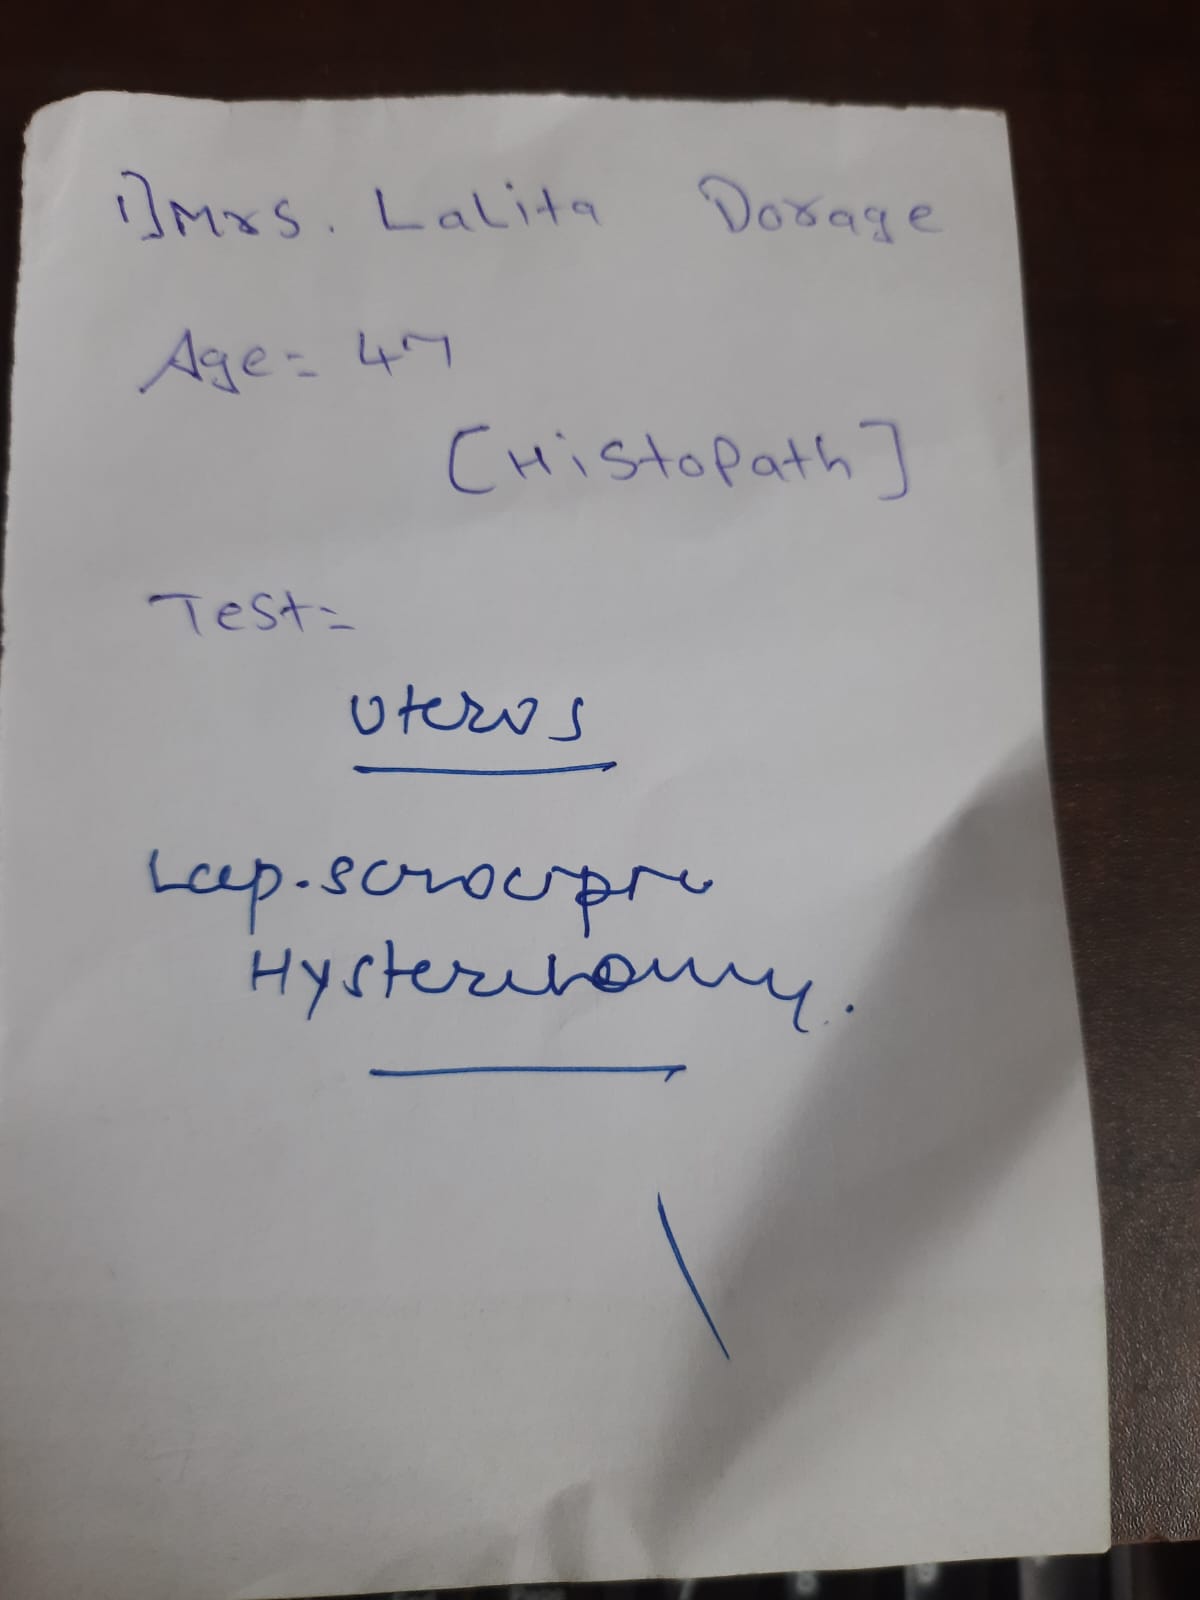 1] Mrs. Lalita Dorage
Age = 47
[Histopath]
Test =
Uterus
Lap.
Hysterectomy.